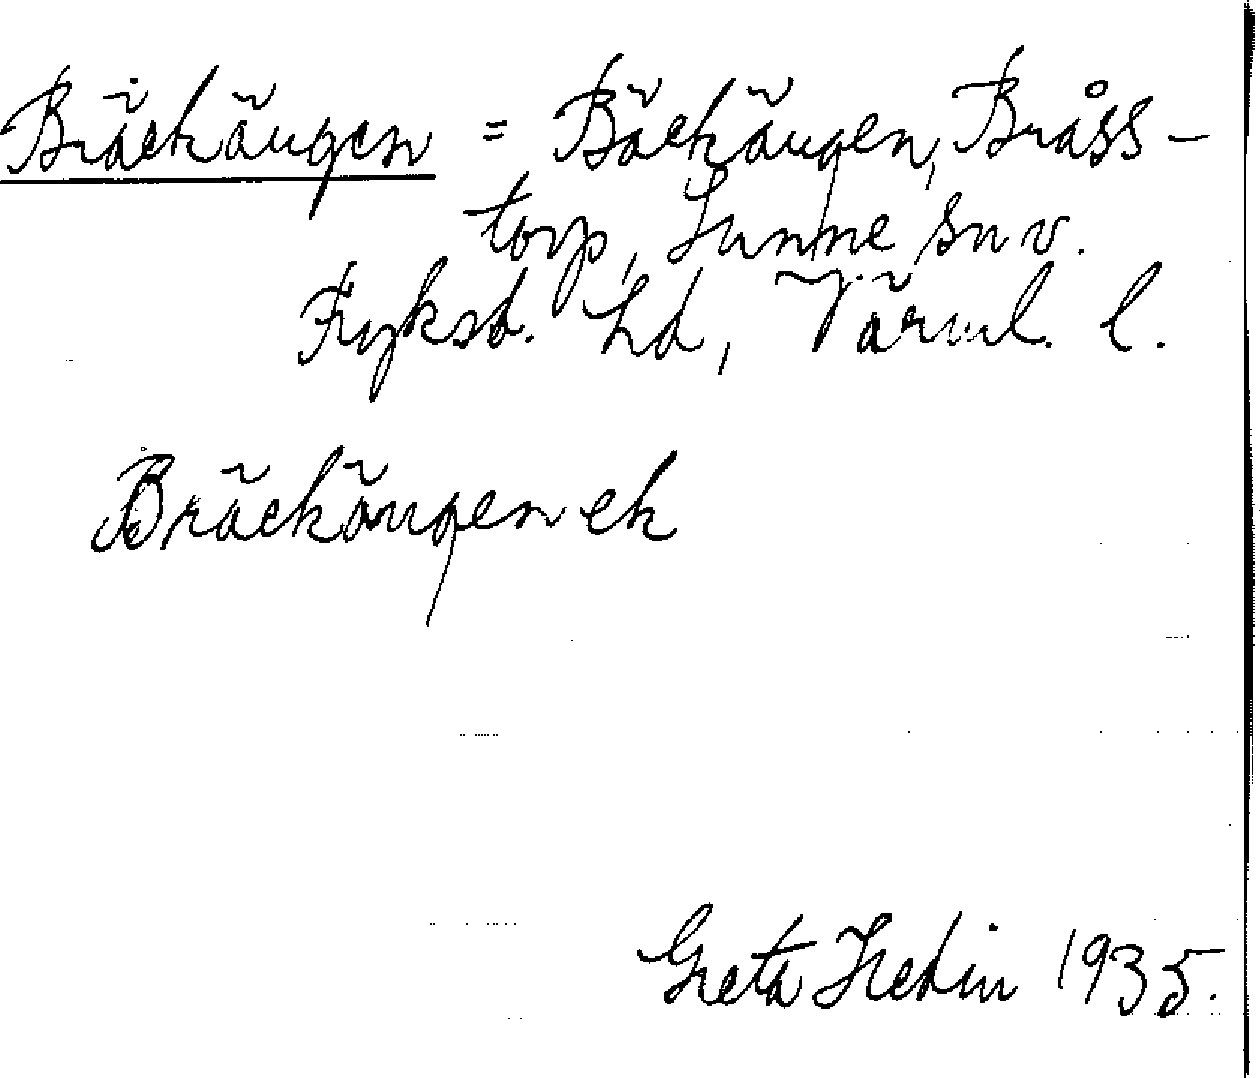 Bräckängen = Bäckängen, Bråss-
torp, Sunne snv.
Fryksd. hd, Värml. l.
Bräckängen ek
Greta Hedin 1935.